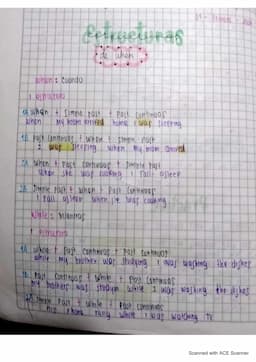 Estructuras
de when
When : Cuando
1 estructura
1A When + Simple Past + Past Continuos
When my mom arrived home I was sleeping
1B Past Continuos + When + Simple Past
I was sleeping when my mom arrived
2A When + Past Continuos + Simple Past
When she was cooking I fall asleep
2B Simple Past + When + Past Continuos
I fall asleep when she was cooking
While : Mientras
1 estructura
1A While + Past Continuos + Past Continuos
While my brother was studying I was washing the dishes
1B Past Continuos + While + Past Continuos
my brothers was studyin while I was washing the dishes
2A Simple Past + While + Past Continuos
phone rang while I was watching tv
Scanned with ACE Scanner